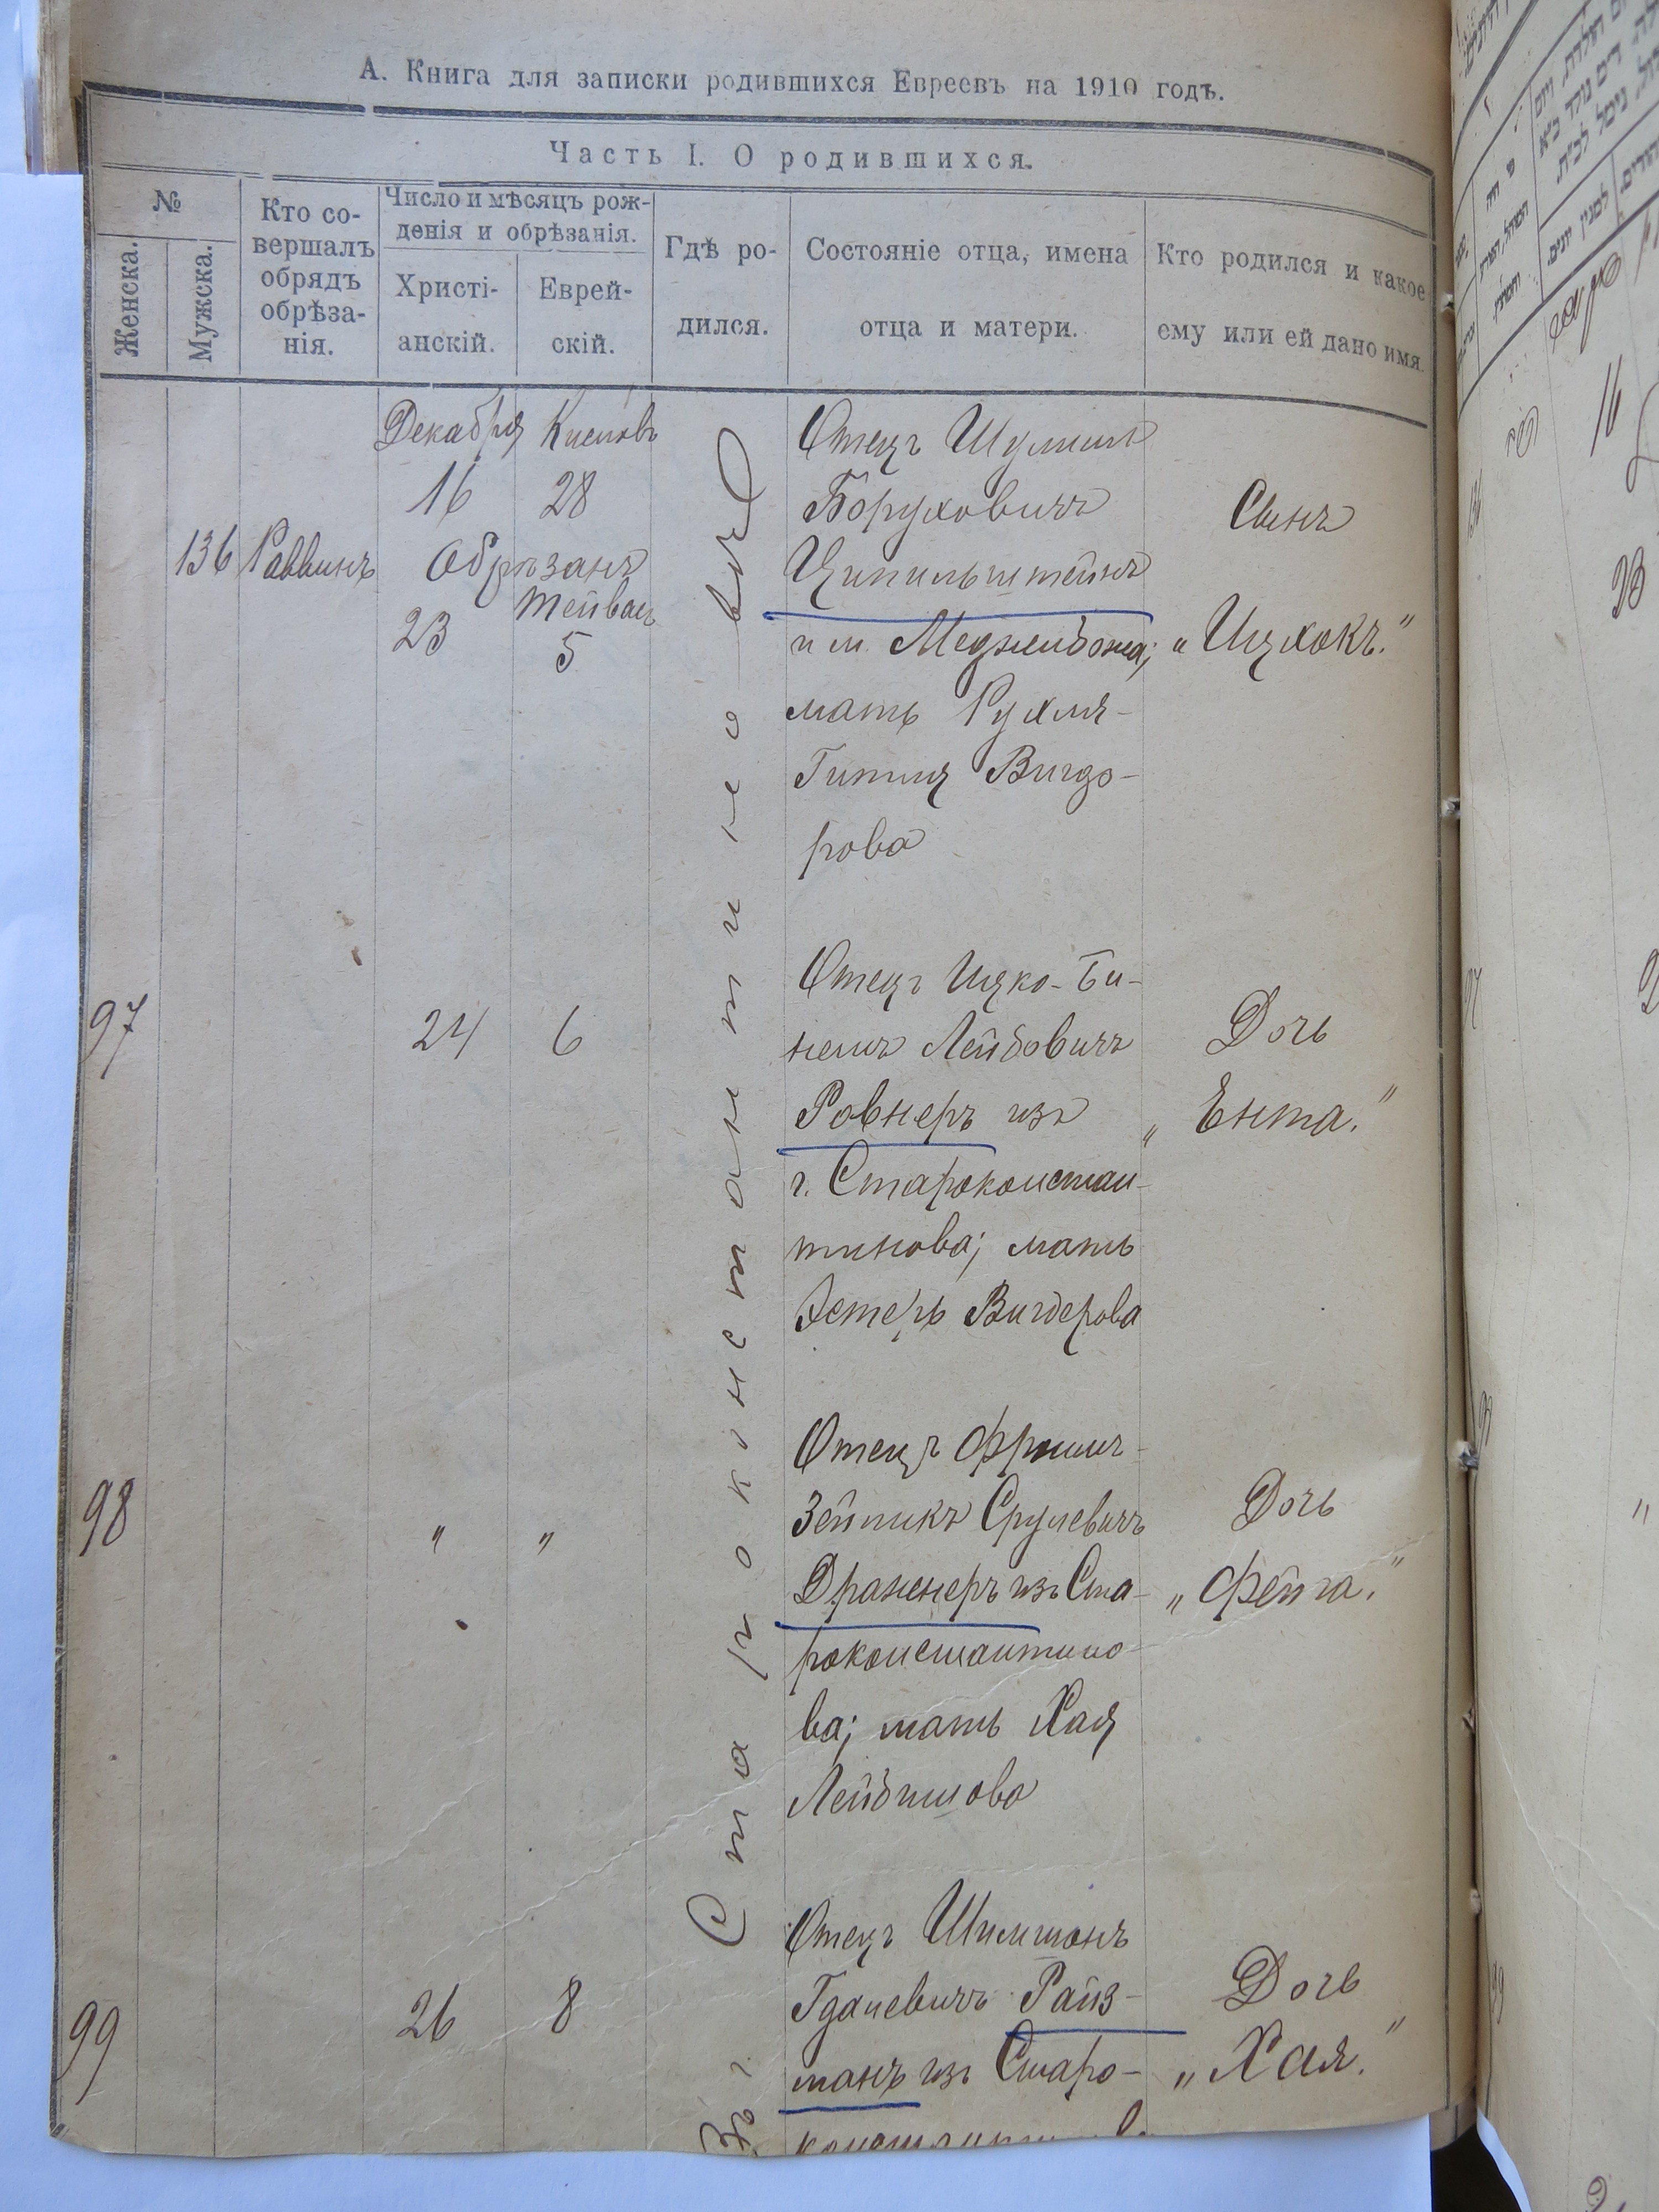 А. Книга для записки родившихся Евреевъ на 1910 годъ.
Часть I. О родившихся.
№
Женска.
Мужска.
Кто со-
вершалъ
обрядъ
обрѣза-
нія.
Число и мѣсяцъ рож-
денія и обрѣзанія.
Христі-
анскій.
Еврей-
скій.
Гдѣ ро-
дился.
Состояніе отца, имена
отца и матери.
Кто родился и какое
ему или ей дано имя
Въ г. Староконстантиновѣ
136
Раввинъ
Декабря Кислевъ
16 28
Обрѣзанъ
Тейвась
23 5
Отецъ Шулимъ
Боруховичъ
Ципильштейнъ
и м. Меджибожа;
мать Рухля-
Гитля Вигдо-
рова
Сынъ
„Ицхокъ."
97
24 6
Отецъ Ицко-Би-
немъ Лейбовичъ
Ровнеръ изъ
г. Староконстан-
тинова; мать
Эстеръ Вигдерова
Дочь
„Ента."
98
" "
Отецъ Фроимъ-
Зейликъ Срулевичъ
Дражнеръ изъ Ста-
роконстантино-
ва; мать Хая
Лейбишова
Дочь
„Фейга."
99
26 8
Отецъ Шимшонъ
Гдалевичъ Райз-
манъ изъ Старо-
константинова
Дочь
„Хая."